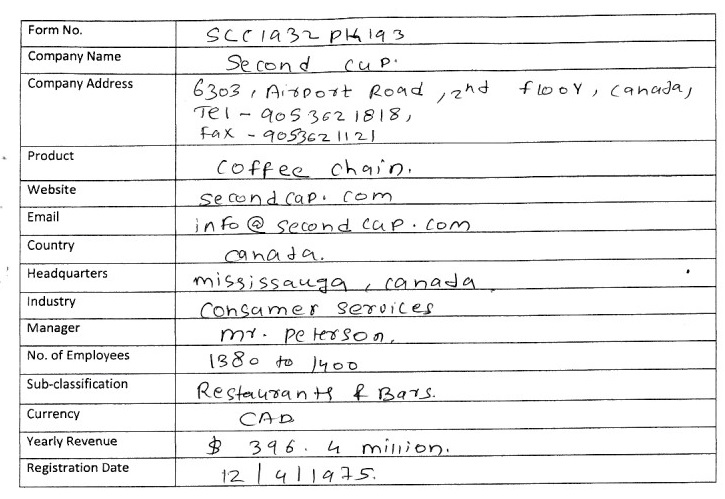 Form No. SCC1932PH193
Company Name Second cup.
Company Address 6303, Airport Road, 2nd floor, canada,
Tel - 9053621818,
Fax - 9053621121
Product coffee chain.
Website secondcup. com
Email info@secondcup.com
Country canada.
Headquarters mississauga, canada
Industry Consumer services
Manager mr. peterson.
No. of Employees 1380 to 1400
Sub-classification Restaurants & Bars.
Currency CAD
Yearly Revenue $ 396.4 million.
Registration Date 12/9/1975.